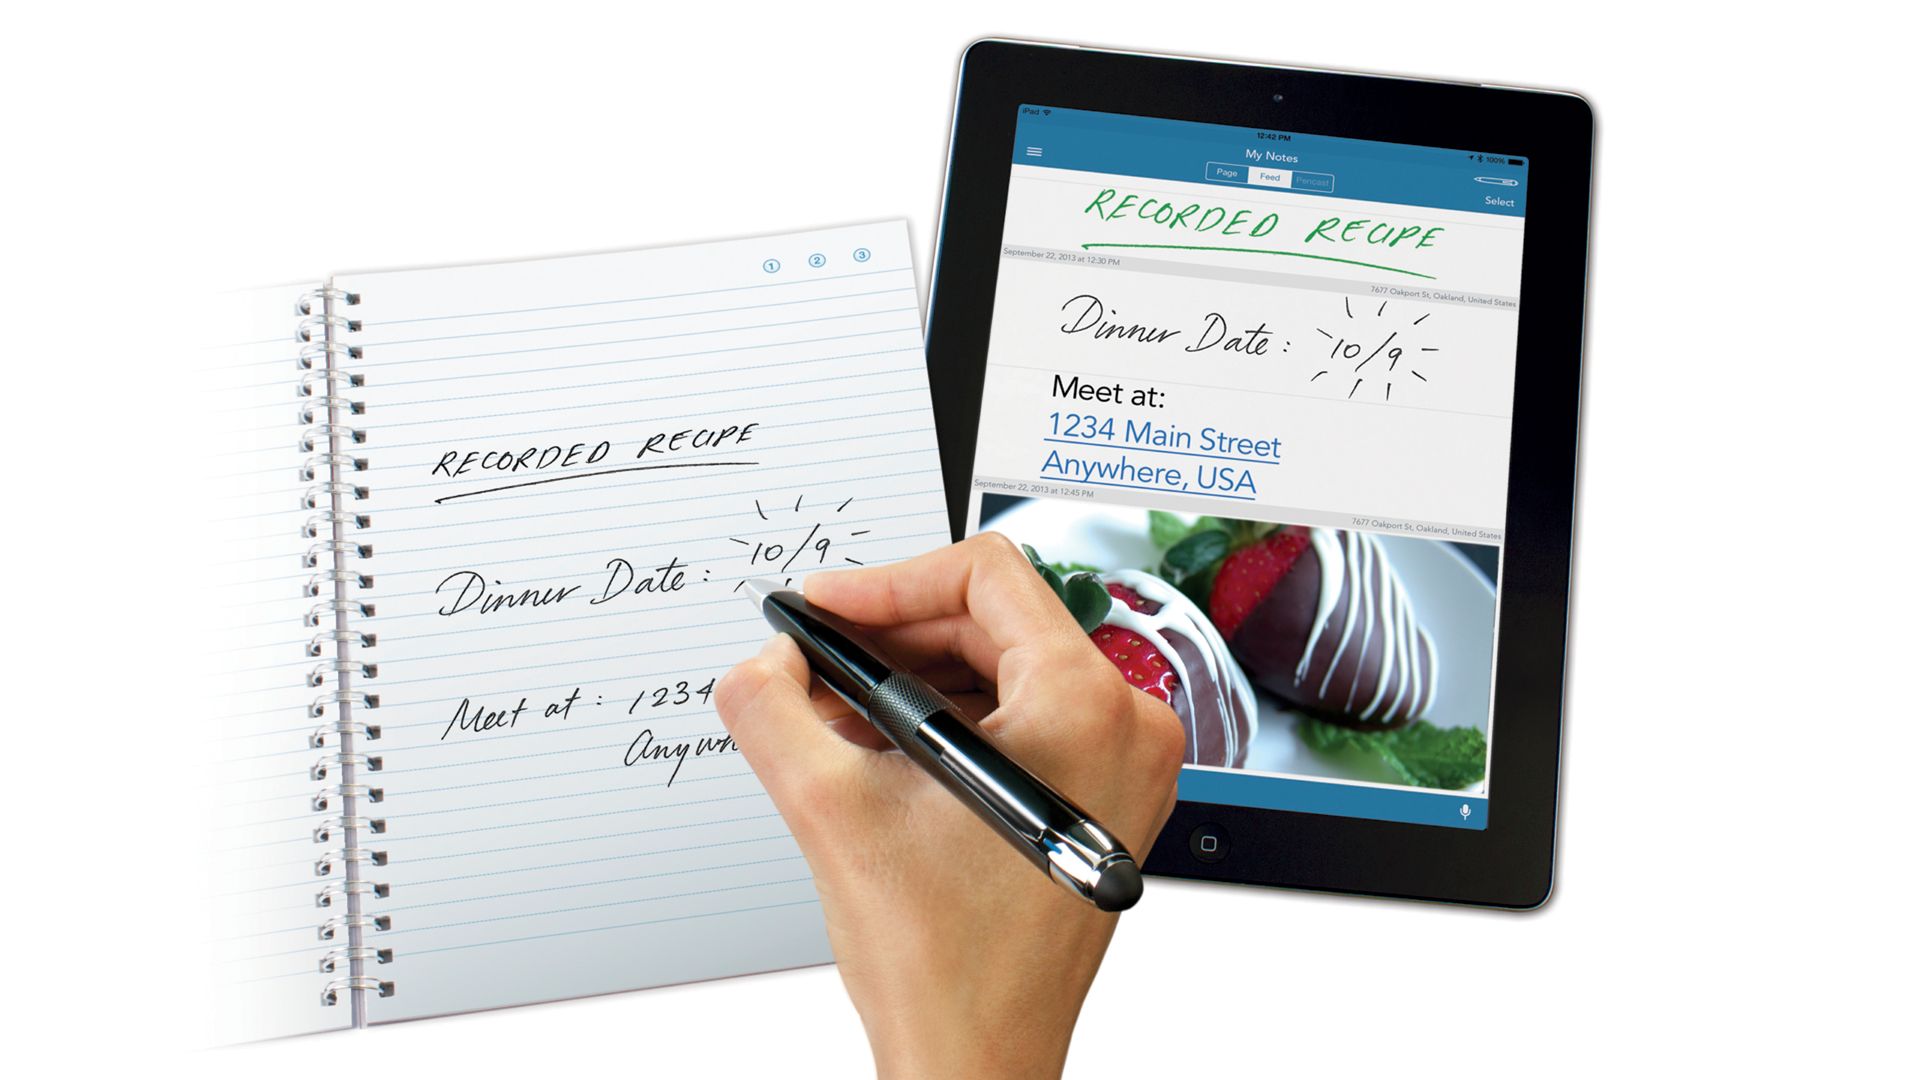 1 2 3
RECORDED RECIPE
Dinner Date: 10/9
Meet at: 1234
Anywh
iPad
12:42 PM
100%
My Notes
Page Feed Pencast
Select
RECORDED RECIPE
September 22, 2013 at 12:30 PM
7677 Oakport St, Oakland, United States
Dinner Date: 10/9
Meet at:
1234 Main Street
Anywhere, USA
September 22, 2013 at 12:45 PM
7677 Oakport St, Oakland, United States